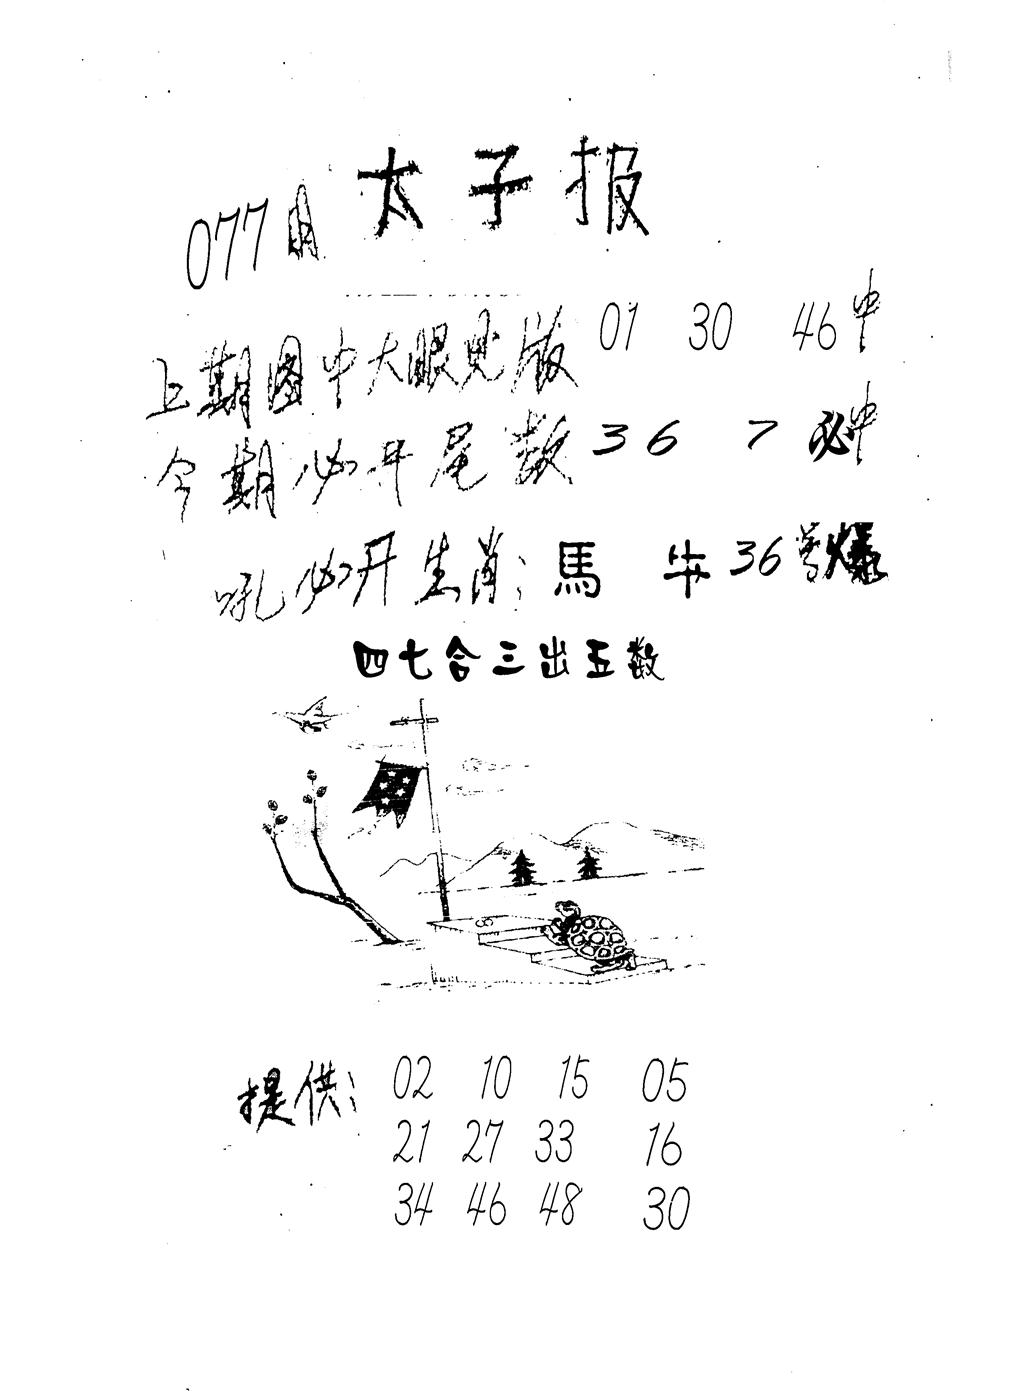 太子报
077期
上期图中大眼见版 01 30 46中
今期必开尾数 3 6 7 必中
吼必开生肖：馬 牛 36号爆
四七合三出五数
提供： 02 10 15 05
21 27 33 16
34 46 48 30